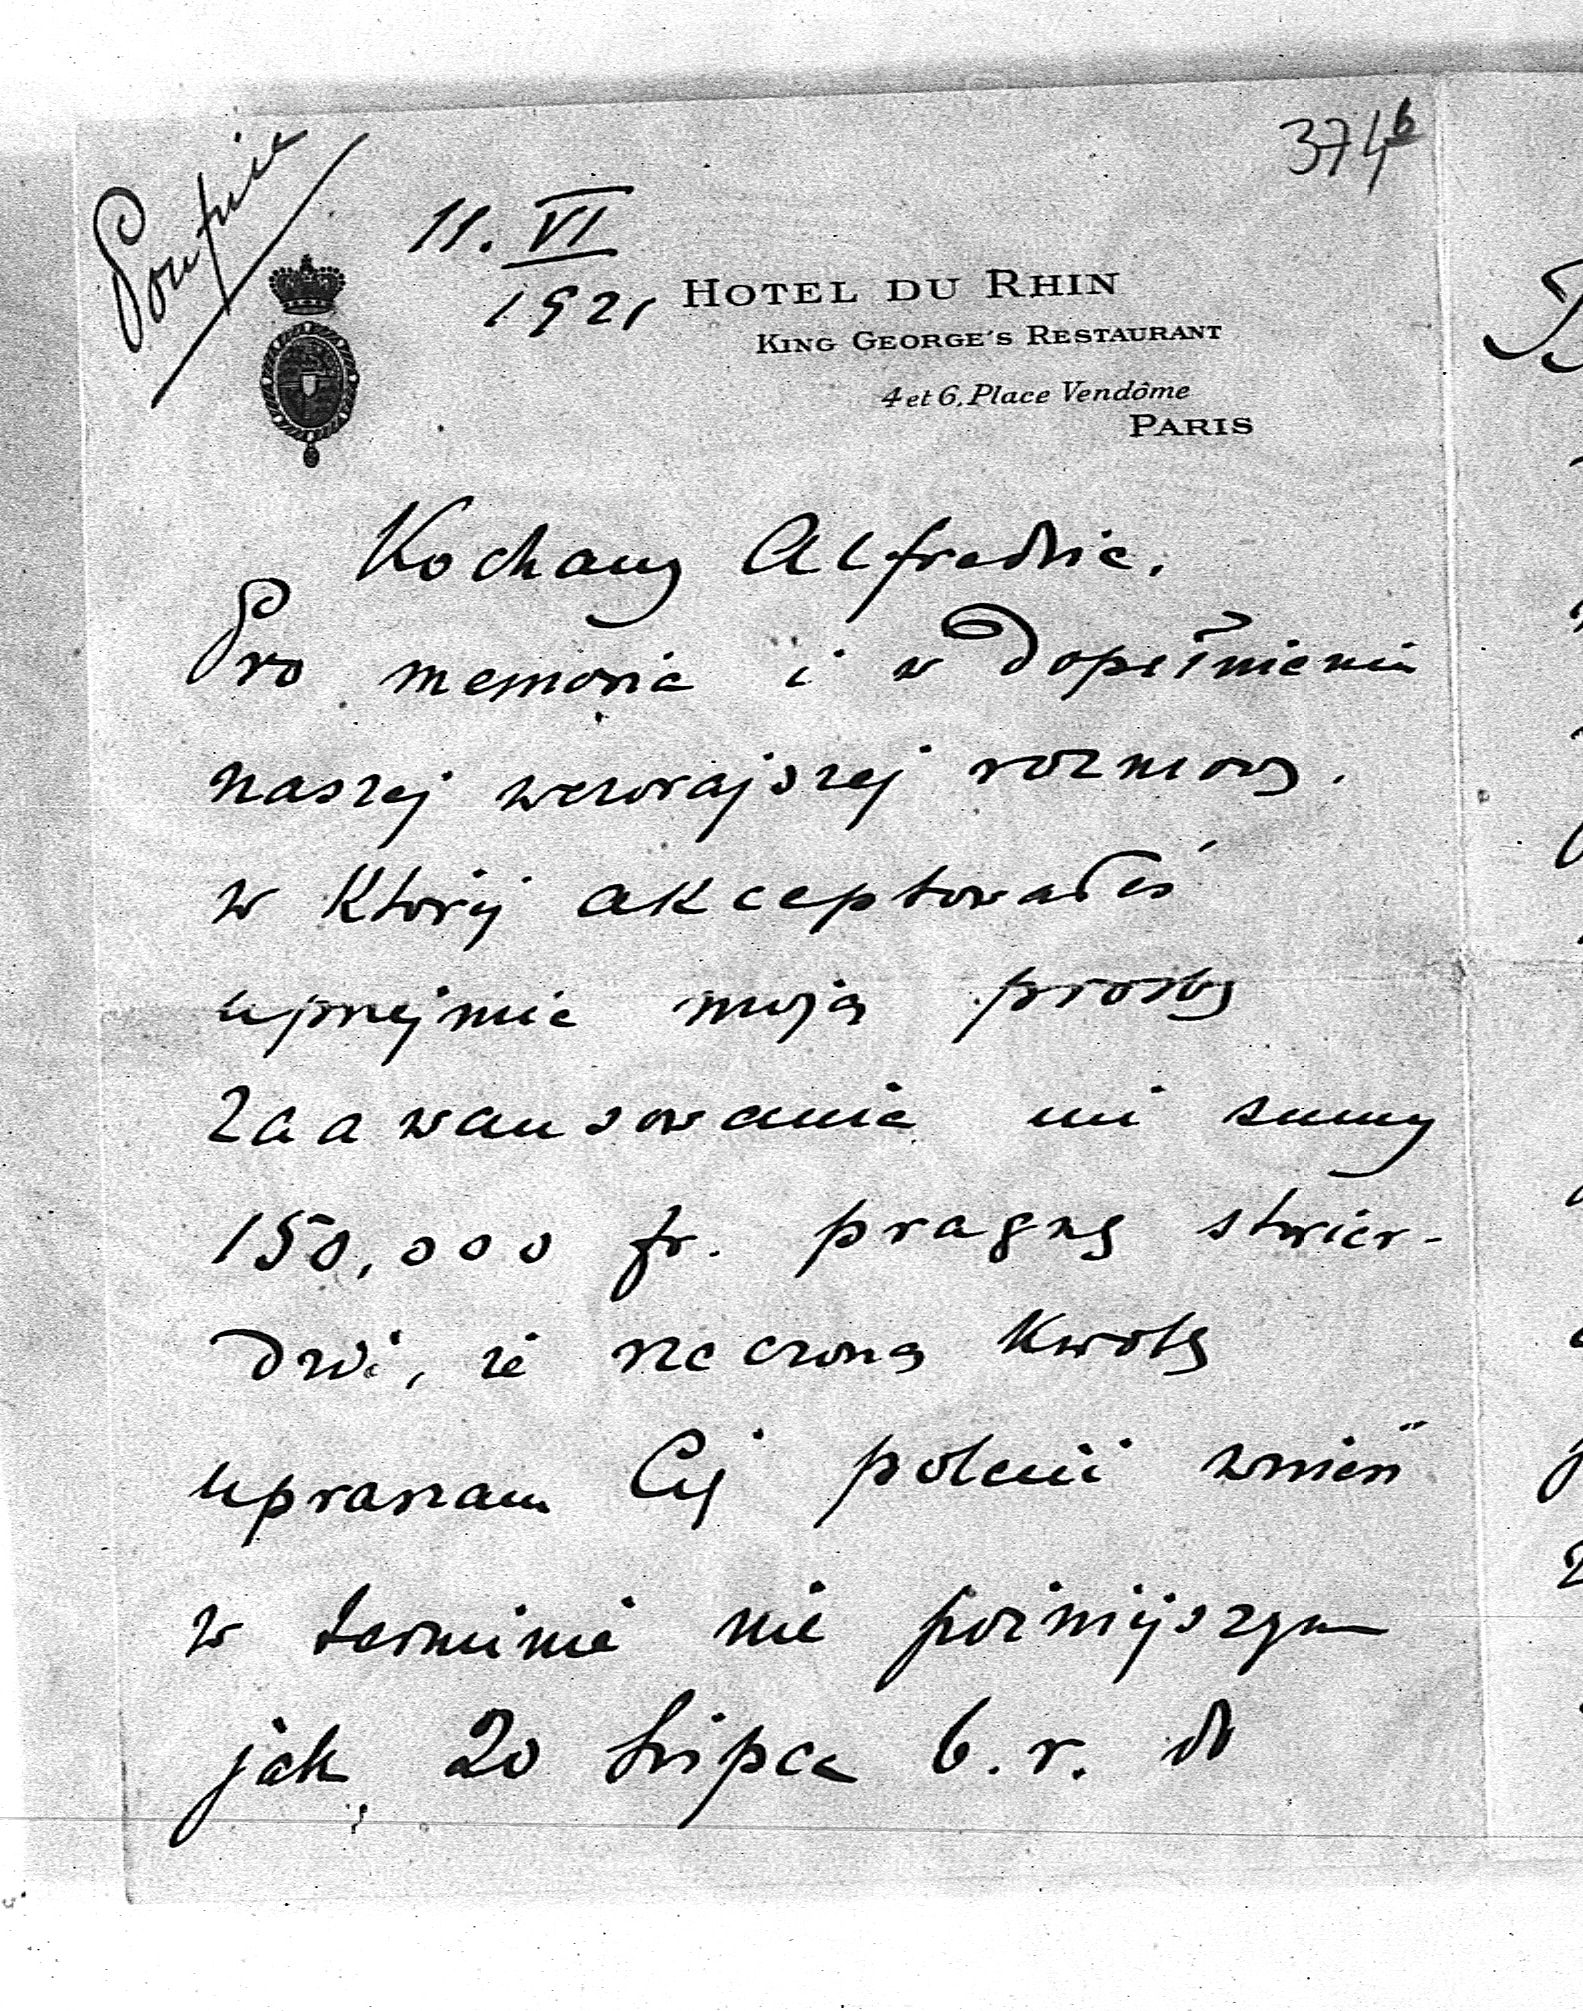 Poufnie
374b
11. VI
1921
HOTEL DU RHIN
KING GEORGE'S RESTAURANT
4 et 6, Place Vendôme
PARIS
Kochany Alfredzie.
Pro memoria i w dopełnieniu
naszej wczorajszej rozmowy.
w której akceptowałeś
uprzejmie moją prośbę
zaawansowania mi sumy
150,000 fr. pragnę stwier-
dzić, że rzeczoną kwotę
upraszam Cię polecić wnieść
w terminie nie późniejszym
jak 20 Lipca b. r. do